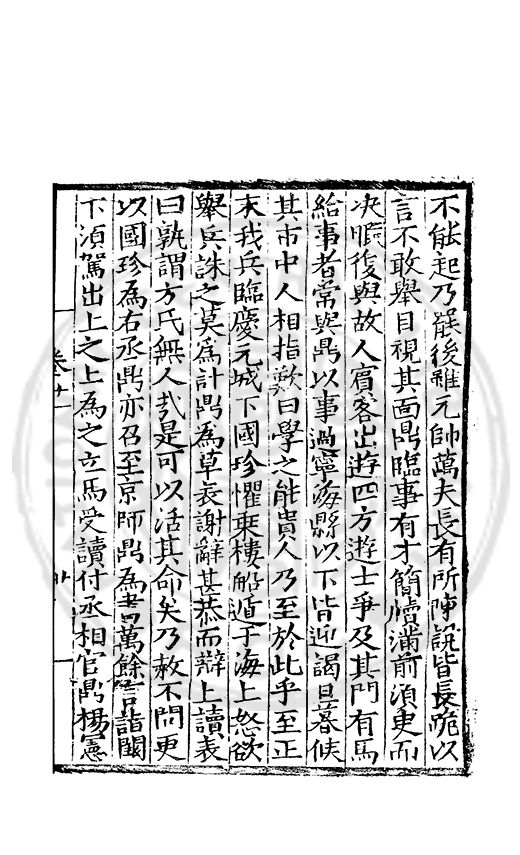 不能起乃罷後雖元帥萬夫長有所陳說皆長跪以
言不敢舉目視其面鼎臨事有才簡牘滿前須臾而
决暇復與故人賓客出遊四方遊士爭及其門有馬
給事者常與鼎以事過寧海縣以下皆迎謁旦暮候
其市中人相指歎曰學之能貴人乃至於此乎至正
末我兵臨慶元城下國珍懼乗樓船遁于海上怒欲
舉兵誅之莫為計鼎為草表謝辭甚恭而辯上讀表
曰孰謂方氏無人㢤是可以活其命矣乃赦不問更
以國珍為右丞鼎亦召至京師鼎為書萬餘言詣闕
下須駕出上之上為之立馬受讀付丞相官鼎楊憲
卷廿